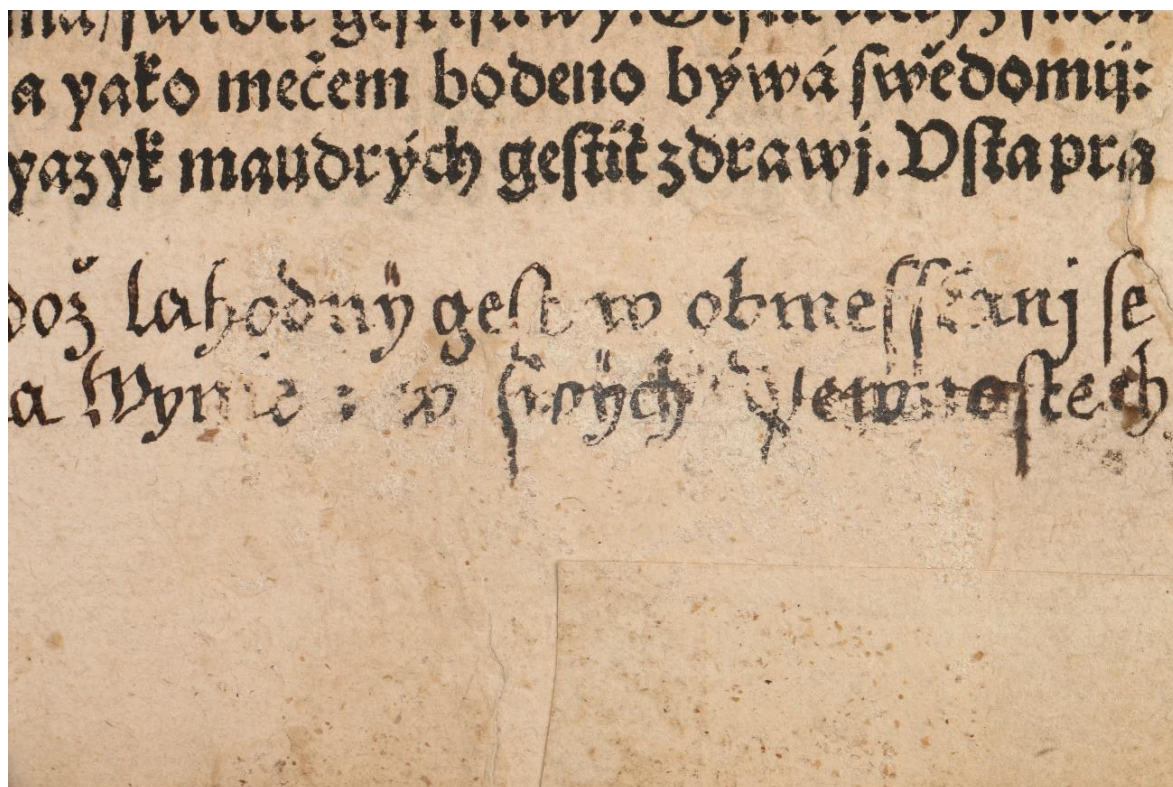 a yako mečem bodeno býwá ſwědomij:
yazyk maudrých geſtiť zdrawj. Vſta pra
dož lahodný geſt w obmeſſkánj ſe
a Wynie : w ſwých Pewnoſtech